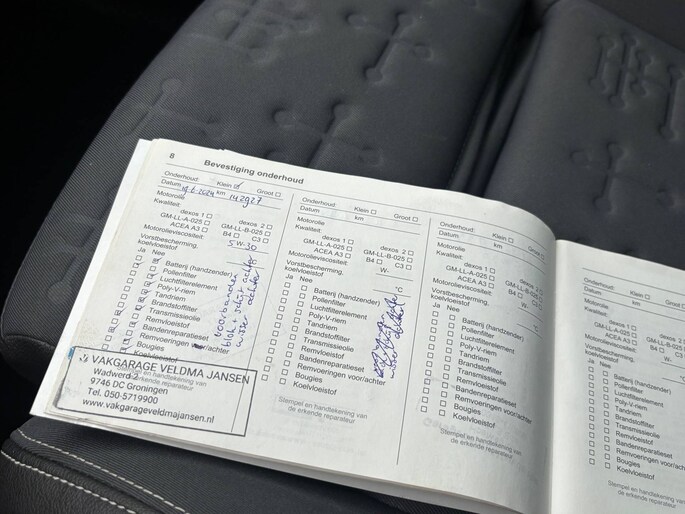 8 Bevestiging onderhoud
Onderhoud: Klein Groot
Datum 2024 km 142927
Motorolie
Kwaliteit:
dexos 1 dexos 2
GM-LL-A-025 GM-LL-B-025
ACEA A3 B4 C3
Motorolieviscositeit: 5 W-30
Vorstbescherming,
koelvloeistof °C
Ja Nee
Batterij (handzender)
Pollenfilter
Luchtfilterelement
Poly-V-riem
Tandriem
Brandstoffilter
Transmissieolie
Remvloeistof
Bandenreparatieset
Remvoeringen voor/achter
Bougies
Koelvloeistof
Stempel en handtekening van
de erkende reparateur
VAKGARAGE VELDMA JANSEN
Wadwerd 2
9746 DC Groningen
Tel. 050-5719900
www.vakgarageveldmajansen.nl
Onderhoud: Klein Groot
Datum km
Motorolie
Kwaliteit:
dexos 1 dexos 2
GM-LL-A-025 GM-LL-B-025
ACEA A3 B4 C3
Motorolieviscositeit: W-
Vorstbescherming,
koelvloeistof °C
Ja Nee
Batterij (handzender)
Pollenfilter
Luchtfilterelement
Poly-V-riem
Tandriem
Brandstoffilter
Transmissieolie
Remvloeistof
Bandenreparatieset
Remvoeringen voor/achter
Bougies
Koelvloeistof
Stempel en handtekening van
de erkende reparateur
Onderhoud: Klein Groot
Datum km
Motorolie
Kwaliteit:
dexos 1 dexos 2
GM-LL-A-025 GM-LL-B-025
ACEA A3 B4 C3
Motorolieviscositeit: W-
Vorstbescherming,
koelvloeistof °C
Ja Nee
Batterij (handzender)
Pollenfilter
Luchtfilterelement
Poly-V-riem
Tandriem
Brandstoffilter
Transmissieolie
Remvloeistof
Bandenreparatieset
Remvoeringen voor/achter
Bougies
Koelvloeistof
Stempel en handtekening van
de erkende reparateur
Onderhoud: Klein
Datum km
Motorolie
Kwaliteit:
dexos 1 dexos 2
GM-LL-A-025 GM-LL-B-025
ACEA A3 B4 C3
Motorolieviscositeit: W-
Vorstbescherming,
koelvloeistof
Ja Nee
Batterij (handzender)
Pollenfilter
Luchtfilterelement
Poly-V-riem
Tandriem
Brandstoffilter
Transmissieolie
Remvloeistof
Bandenreparatieset
Remvoeringen voor/achter
Bougies
Koelvloeistof
Stempel en handtekening van
de erkende reparateur